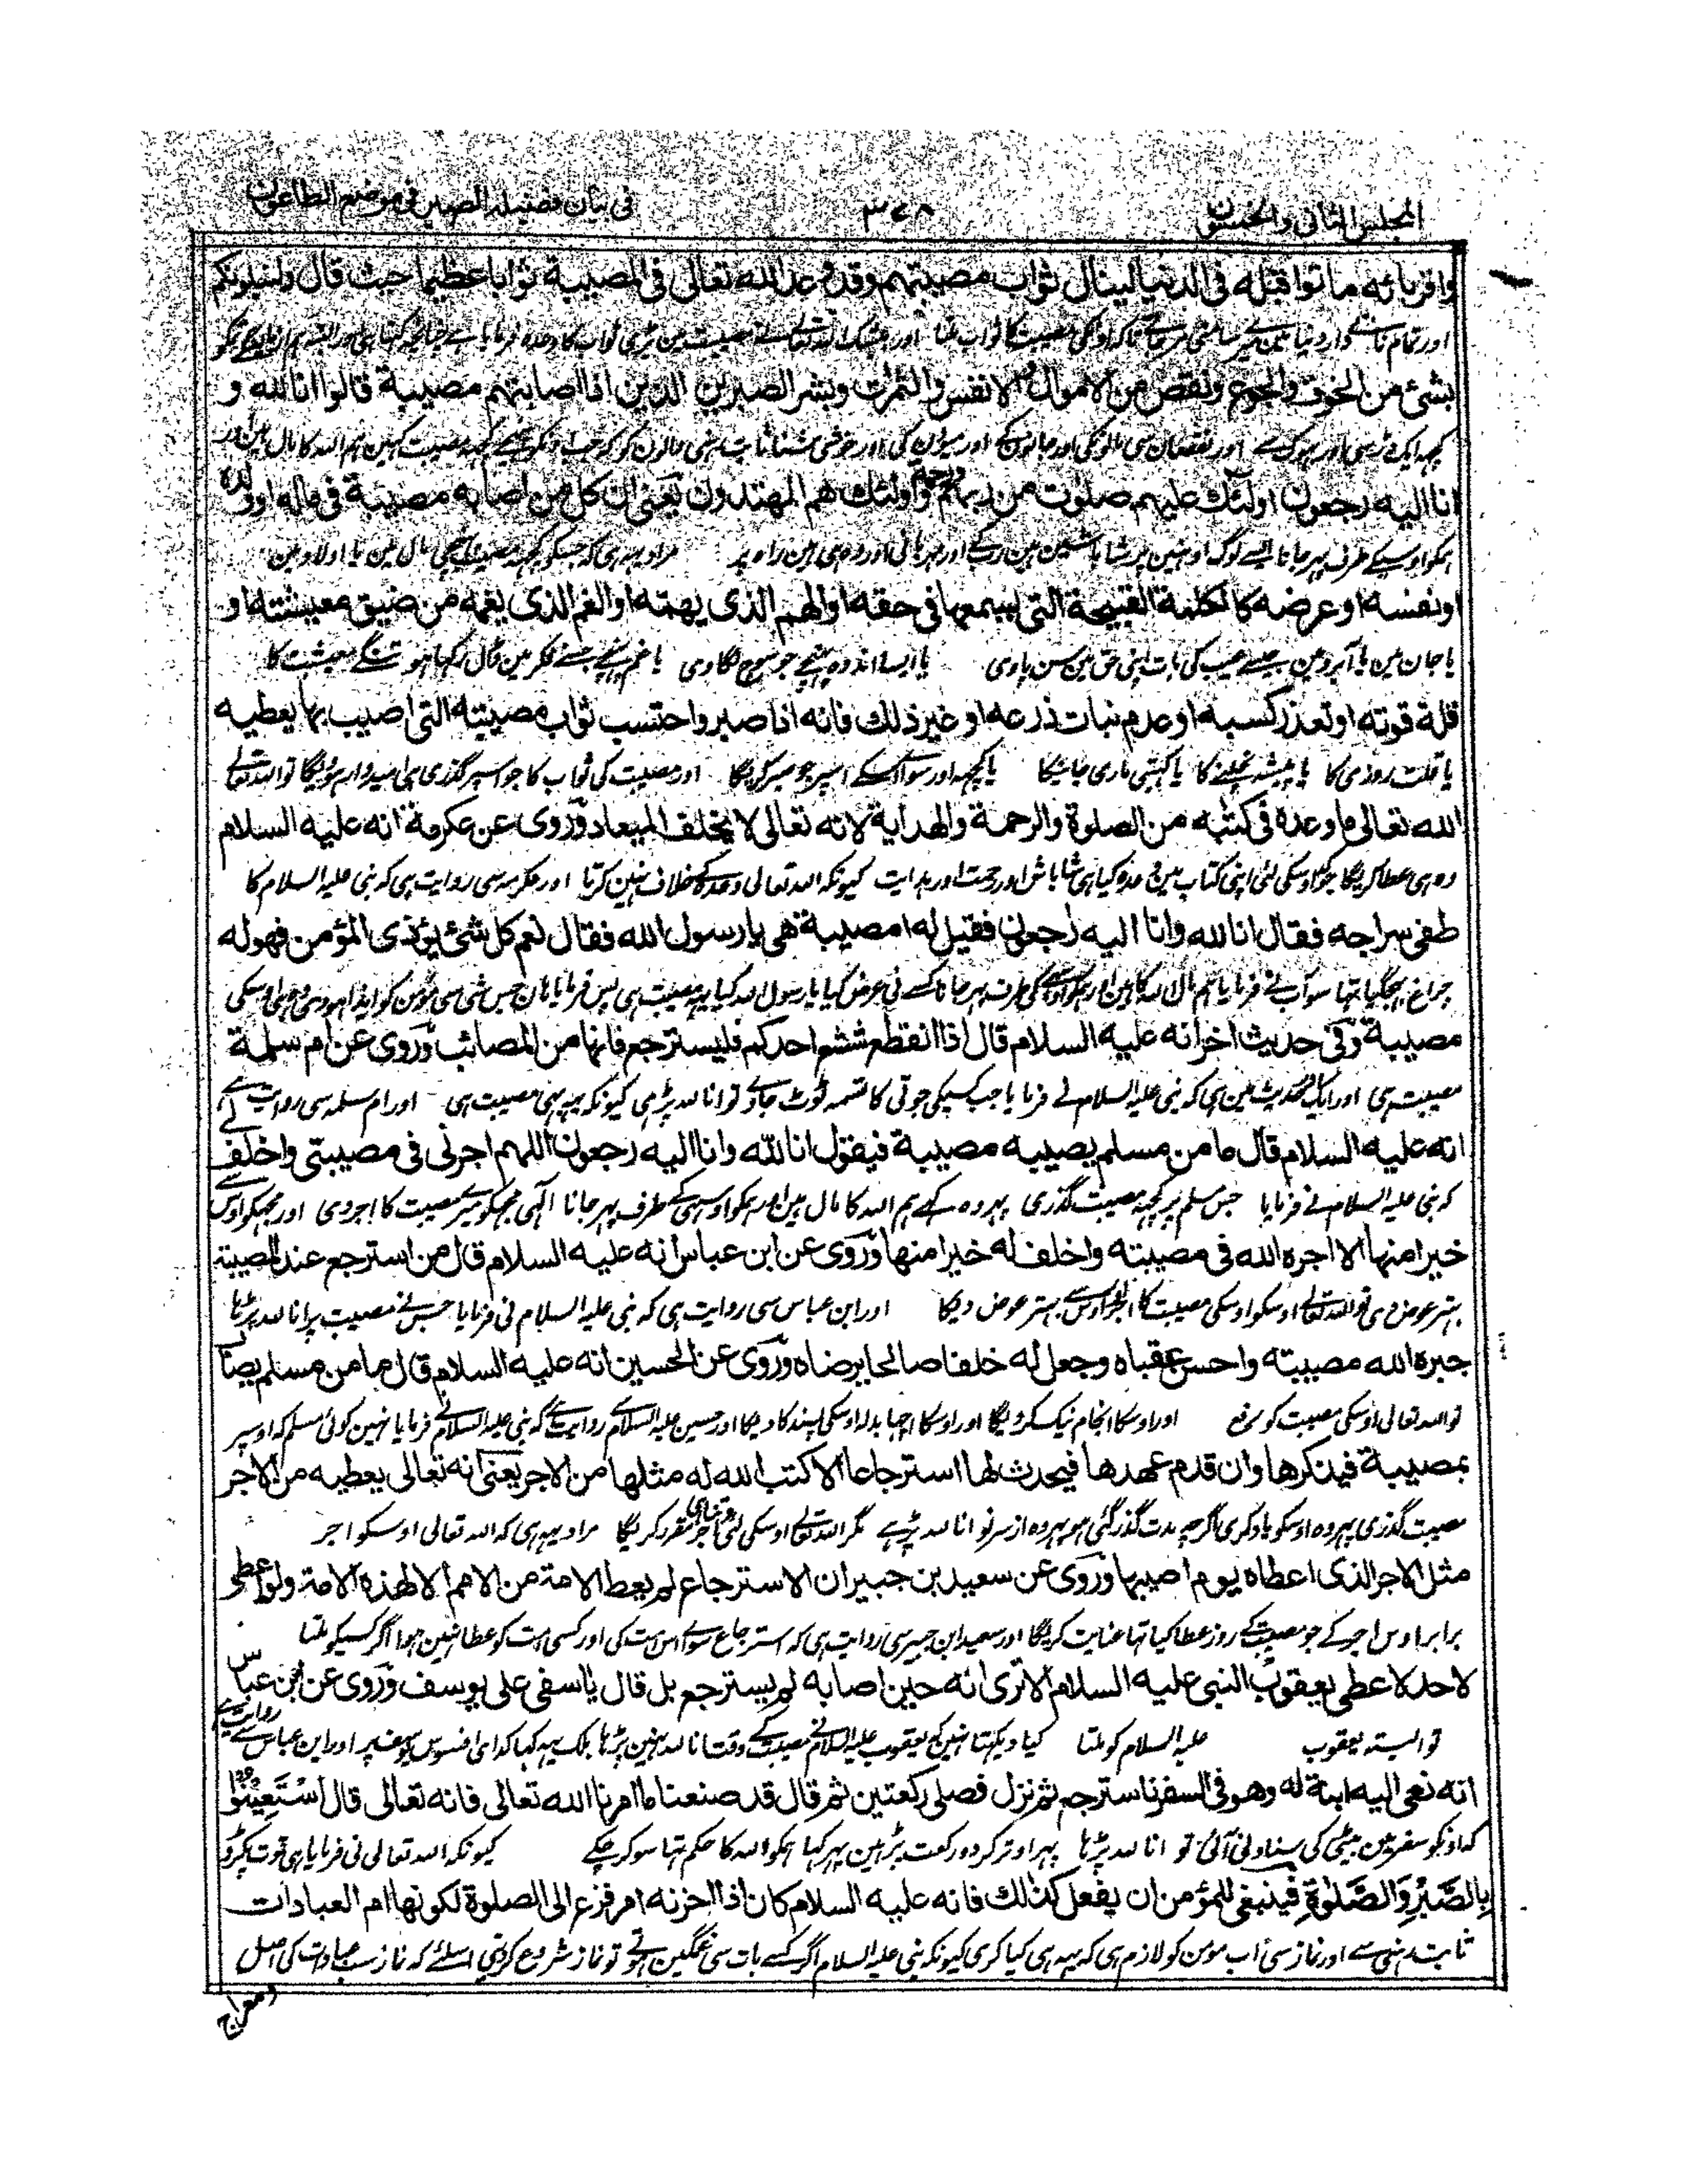 المجلس الثانی والخمسون ٣٧٨ فی بیان فضیلة الصبر فی موضع الطاعون
واقربائه ماتوا قبله فی الدنیا لینال ثواب مصیبتهم وقد وعد الله تعالی فی المصیبة ثوابا عظیما حیث قال ولنبلونکم
اور تمام ناتے دار دنیا مین
بشئ من الخوف والجوع ونقص من الاموال والانفس والثمرٰت وبشر الصبرین الذین اذا اصابتهم مصیبة قالوا انا لله و
کچہہ ایک ڈر سی اور بہوک سے اور نقصان سی مالونکی اور جانونکے اور میوون کی اور خوشی سنا ثابت رہنی والون کو کہ جب اونکو پہنچے کچہہ مصیبت کہین ہم اللہ کا مال ہین اور
انا الیه رجعون اولٰئک علیهم صلوٰت من ربهم ورحمة واولٰئک هم المهتدون یعنی ان کل من اصابه مصیبة فی ماله او ولده
ہمکو اوسیکے طرف پہر جانا ایسے لوگ اونہین پر شاباشین ہین رب کے اور مہربانی اور وہی ہین راہ پر مراد یہہ ہی کہ جسکو کچہہ مصیبت پہنچی مال مین یا اولاد مین
اونفسه او عرضه کالکلمة القبیحة التی یسمعها فی حقه او الهم الذی یهمه او الغم الذی یغمه من ضیق معیشته او
یا جان مین یا آبرو مین جیسے عیب کی بات اپنی حق مین سن پاوی یا ایسا اندوہ پہنچے جو سوچ لگا دی یا غم پہنچے جسنے فکر مین ڈال رکہا ہو تنگے معیشت کا
قلة قوته او تعذر کسبه او عدم نبات زرعه او غیر ذلک فانه اذا صبر واحتسب ثواب مصیبته التی اصیب بها یعطیه
یا قلت روزی کا یا پیشہ نچلنے کا یا کہیتی ماری جانیکا یا کچہہ اور سوا اسکے اسپر جو صبر کریگا اور مصیبت کی ثواب کا جو اسپر گذری ہی امیدوار ہوویگا تو اللہ تعالے
الله تعالی ما وعده فی کتٰبه من الصلوة والرحمة والهدایة لانه تعالی لا یخلف المیعاد وروی عن عکرمة انه علیه السلام
وہ ہی عطا کریگا جو کہ اوسکی لئی اپنی کتاب مین وعدہ کیا ہی شاباش اور رحمت اور ہدایت کیونکہ اللہ تعالی وعدہ کے خلاف نہین کرتا اور عکرمہ سی روایت ہی کہ نبی علیہ السلام کا
طفی سراجه فقال انا لله وانا الیه رٰجعون فقیل له امصیبة هی یا رسول الله فقال نعم کل شئ یؤذی المؤمن فهو له
چراغ بجہگیا تہا سو آپ نے فرمایا ہم مال اللہ کا ہین اور ہمکو اوسیکی طرف پہر جانا کسے نی عرض کیا یا رسول اللہ کیا یہہ مصیبت ہی پس فرمایا ہان جس شی سی مؤمن کو ایذا ہو وہی اوسکی
مصیبة وفی حدیث اخر انه علیه السلام قال اذا انقطع شسع احدکم فلیسترجع فانها من المصائب وروی عن ام سلمة
مصیبت ہی اور ایک حدیث مین ہی کہ نبی علیہ السلام نے فرمایا جب کسیکی جوتی کا تسمہ ٹوٹ جاوے تو انا للہ پڑہی کیونکہ یہہ بہی مصیبت ہی اور ام سلمہ سی روایت ہے
انه علیه السلام قال ما من مسلم یصیبه مصیبة فیقول انا لله وانا الیه رجعون اللهم اجرنی فی مصیبتی واخلف لی
کہ نبی علیہ السلام نے فرمایا جس مسلم پر کچہہ مصیبت گذری پہر وہ کہے ہم اللہ کا مال ہین اور ہمکو اوسی کے طرف پہر جانا الٰہی مجہکو میرے مصیبت کا اجر دی اور مجہکو اوس سے
خیرا منها الا اجره الله فی مصیبته واخلف له خیرا منها وروی عن ابن عباس انه علیه السلام قال من استرجع عند المصیبة
بہتر عوض دی تو اللہ تعالے اوسکو اوسکی مصیبت کا اجر اور اوس سے بہتر عوض دیگا اور ابن عباس سی روایت ہی کہ نبی علیہ السلام نی فرمایا جس نے مصیبت پر انا للہ پڑہا
جبره الله مصیبته واحسن عقباه وجعل له خلفا صالحا یرضاه وروی عن الحسین انه علیه السلام قال ما من مسلم یصاب
تو اللہ تعالی اوسکی مصیبت کو رفع اور اوسکا انجام نیک کرویگا اور اوسکا اچہا بدلہ اوسکی پسند کا دیگا اور حسین علیہ السلام سے روایت ہے کہ نبی علیہ السلام نے فرمایا نہین کوئی مسلم کہ اوسپر
بمصیبة فیذکرها وان قدم عهدها فیحدث لها استرجاعا الا کتب الله له مثلها من الاجر یعنی انه تعالی یعطیه من الاجر
مصیبت گذری پہر وہ اوسکو یاد کری اگرچہ مدت گذر گئی ہو پہر وہ از سر نو انا للہ پڑہے مگر اللہ تعالے اوسکی لئی اجر مقرر کریگا مراد یہہ ہی کہ اللہ تعالی اوسکو اجر
مثل الاجر الذی اعطاه یوم اصیبها وروی عن سعید بن جبیر ان الاسترجاع لم یعط الامة من الامم الا لهذه الامة ولو اعطی
برابر اوس اجر کے جو مصیبت کے روز عطا کیا تہا عنایت کریگا اور سعید ابن جبیر سی روایت ہی کہ استرجاع سوا اس امت کی اور کسی امت کو عطا نہین ہوا اگر کسیکو ملتا
لاحد لاعطی یعقوب النبی علیه السلام الا تری انه حین اصابه لم یسترجع بل قال یٰاسفی علی یوسف وروی عن ابن عباس
تو البتہ یعقوب علیہ السلام کو ملتا کیا دیکہتا نہین کہ یعقوب علیہ السلام نے مصیبت کے وقت انا للہ نہین پڑہا بلکہ یہہ کہا کہ ای افسوس یوسف پر اور ابن عباس سے روایت ہے
انه نعی الیه ابنة له وهو فی السفر فاسترجع ثم نزل فصلی رکعتین ثم قال قد صنعنا ما امرنا الله تعالی فانه تعالی قال اسْتَعِیْنُوْا
کہ اونکو سفر مین بیٹی کی سناونی آئی تو انا للہ پڑہا پہر اوتر کر دو رکعت پڑہین پہر کہا ہمکو اللہ کا حکم تہا سو کر چکے کیونکہ اللہ تعالی نی فرمایا ہی قوت پکڑو
بِالصَّبْرِ وَالصَّلٰوةِ فینبغی للمؤمن ان یفعل کذلک فانه علیه السلام کان اذا احزنه امر فزع الی الصلوة لکونها ام العبادات
ثابت رہنی سے اور نماز سی اب مؤمن کو لازم ہی کہ یہہ ہی کیا کری کیونکہ نبی علیہ السلام اگر کسے بات سی غمگین ہوتے تو نماز شروع کردیتی اسلئے کہ نماز سب عبادات کی اصل
ومعراج